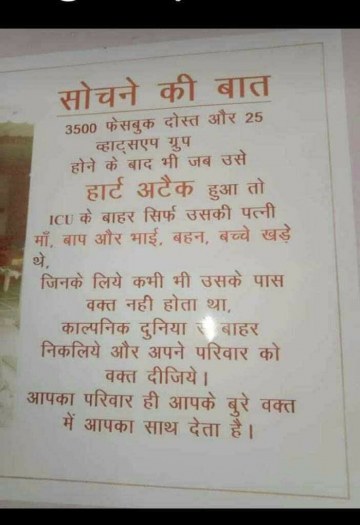 सोचने की बात
3500 फेसबुक दोस्त और 25
व्हाट्सएप ग्रुप
होने के बाद भी जब उसे
हार्ट अटैक हुआ तो
ICU के बाहर सिर्फ उसकी पत्नी
माँ, बाप और भाई, बहन, बच्चे खड़े
थे,
जिनके लिये कभी भी उसके पास
वक्त नही होता था,
काल्पनिक दुनिया से बाहर
निकलिये और अपने परिवार को
वक्त दीजिये।
आपका परिवार ही आपके बुरे वक्त
में आपका साथ देता है।